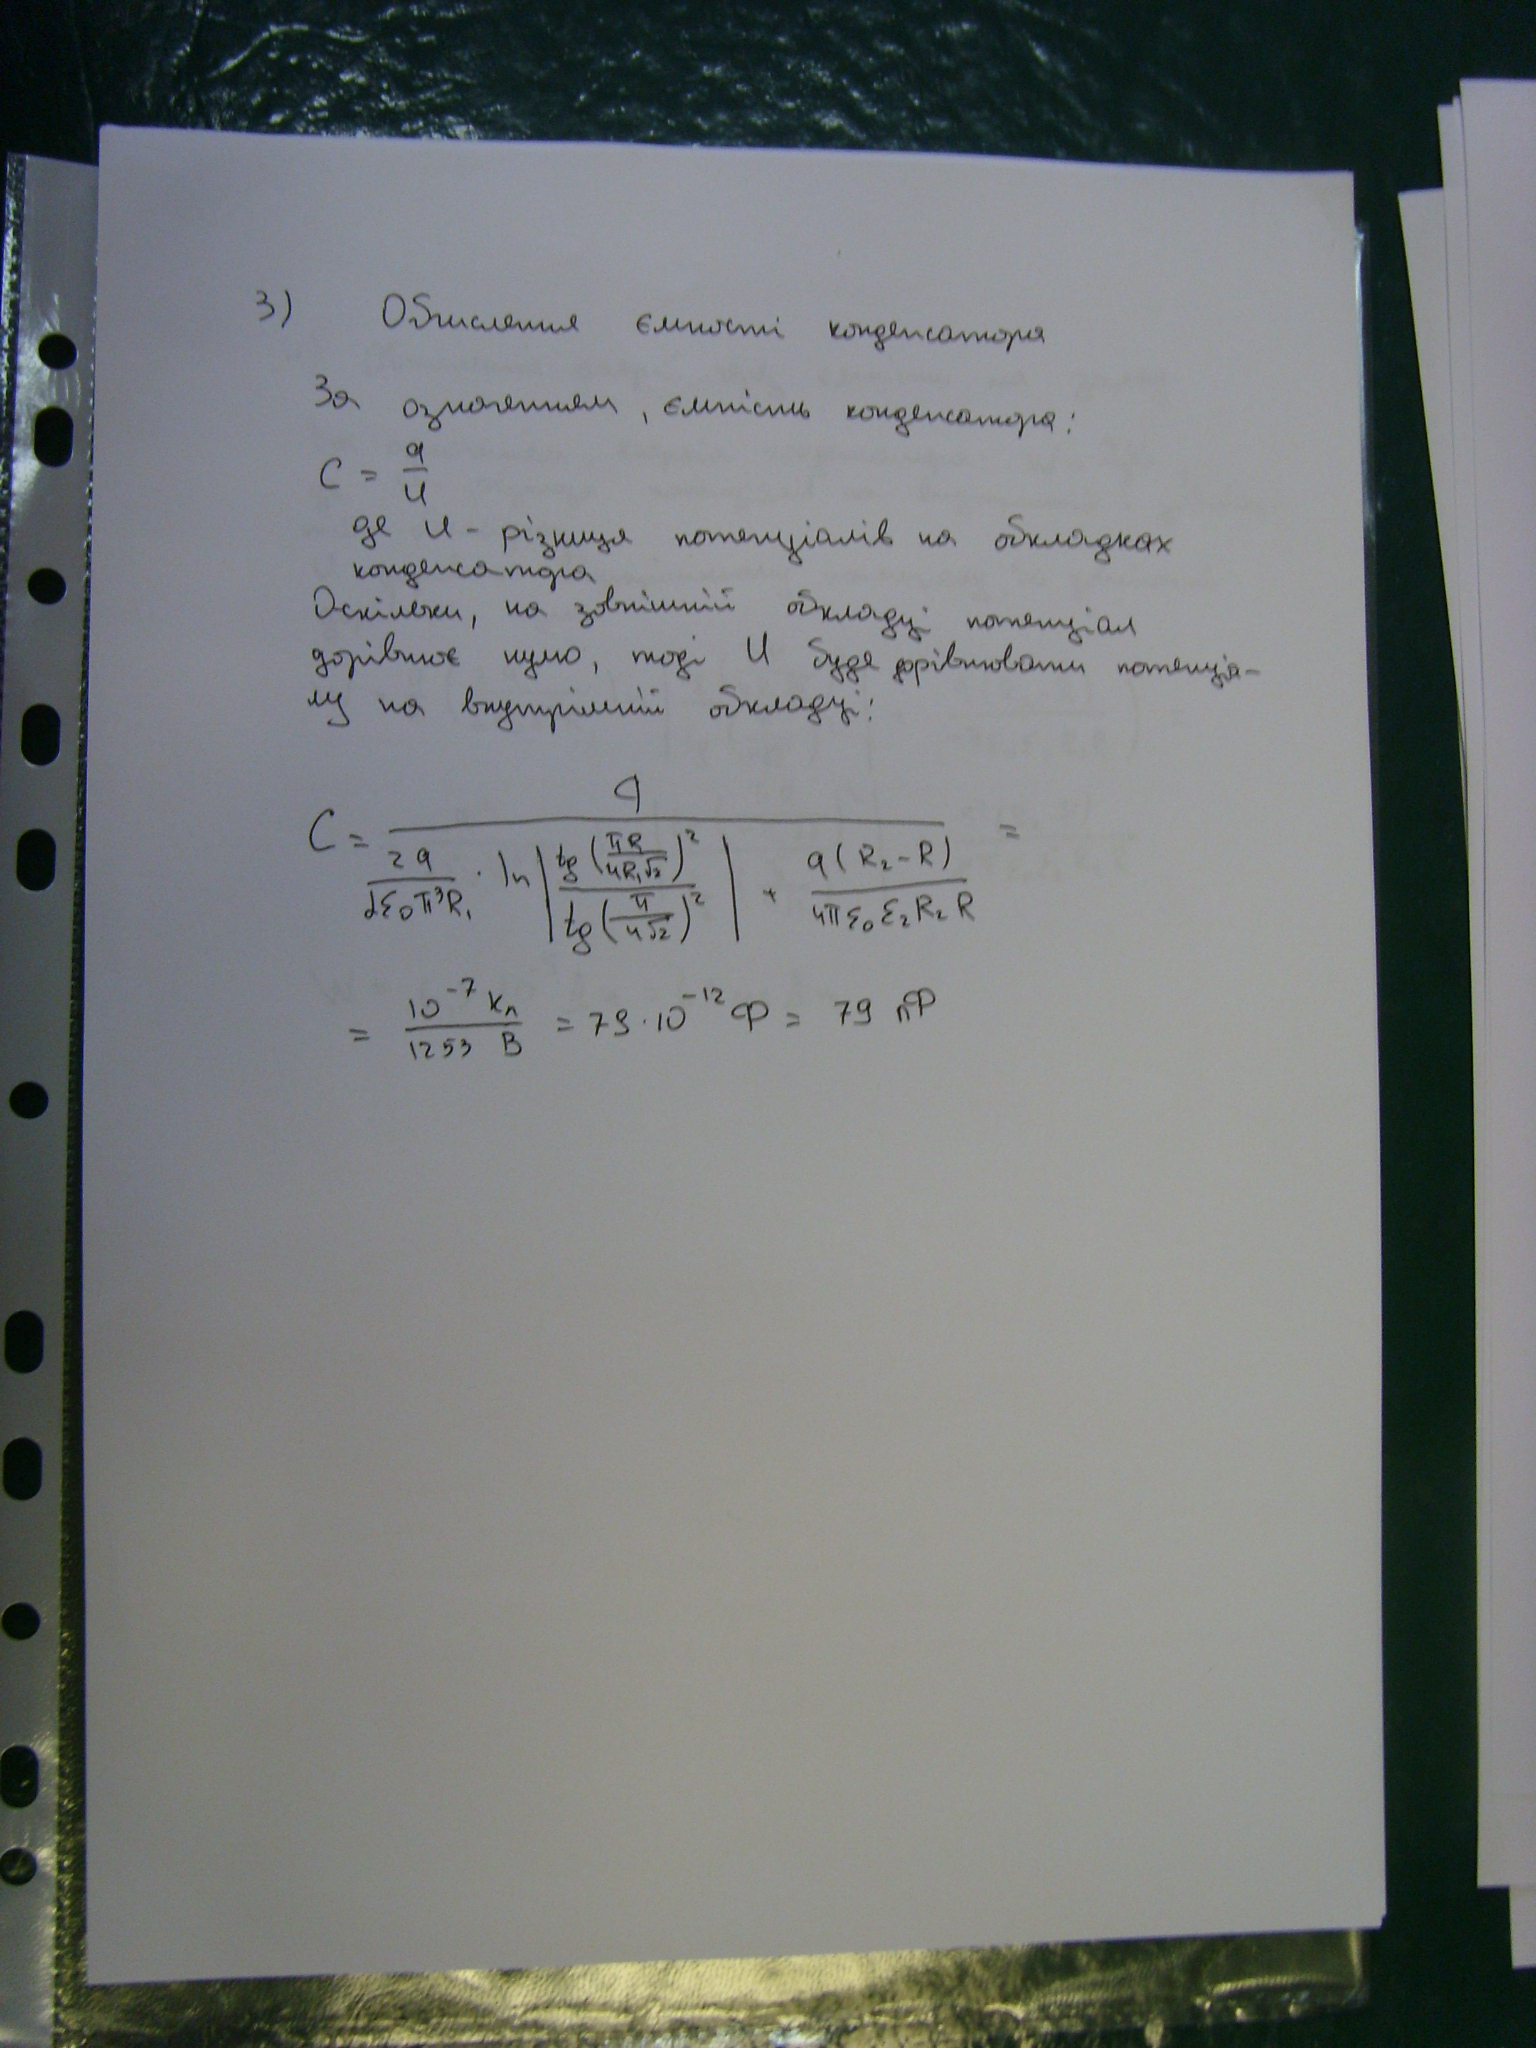 3) Обчислення ємності конденсатора
За означенням, ємність конденсатора:
C = q/U
де U - різниця потенціалів на обкладках
конденсатора
Оскільки, на зовнішній обкладці потенціал
дорівнює нулю, тоді U буде дорівнювати потенція-
лу на внутрішній обкладці:
C = q / (2q/(αε₀π³R₁) · ln|tg(πR/(4R₁√2))² / tg(π/(4√2))²| + q(R₂-R)/(4πε₀ε₂R₂R)) =
= 10⁻⁷ Кл / 1253 В = 79·10⁻¹² Ф = 79 пФ